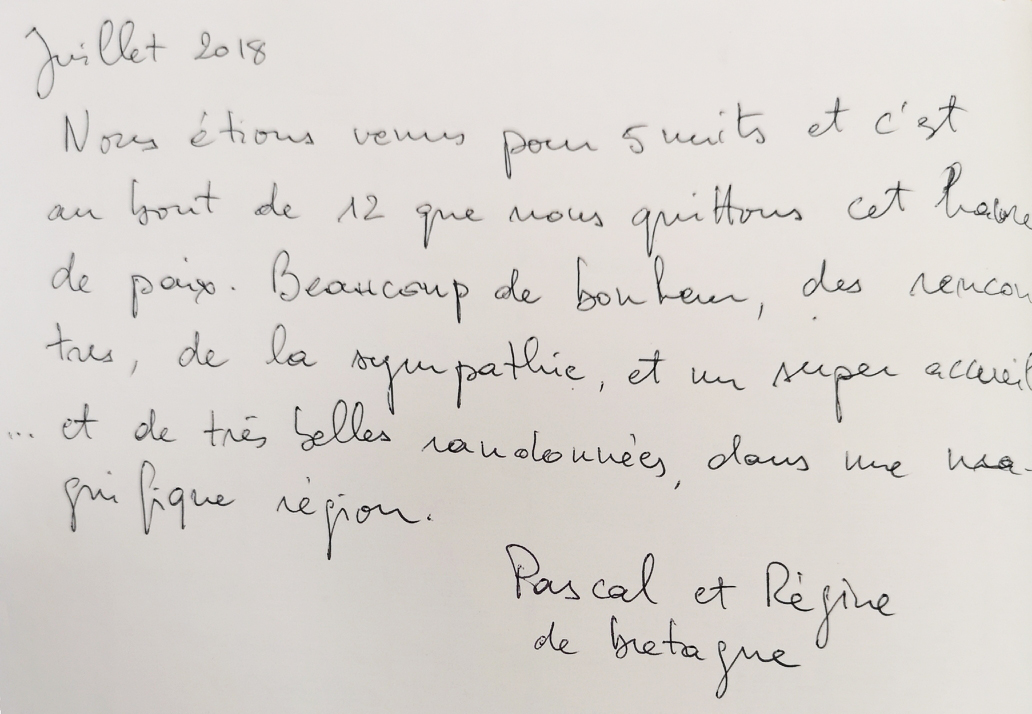 Juillet 2018
Nous étions venus pour 5 nuits et c'est
au bout de 12 que nous quittons cet havre
de paix. Beaucoup de bonheur, des rencon
tres, de la sympathie, et un super accueil
... et de très belles randonnées, dans une ma-
gnifique région.
Pascal et Régine
de bretagne